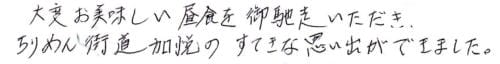 大変お美味しい昼食を御馳走いただき、
ちりめん街道加悦のすてきな思い出ができました。